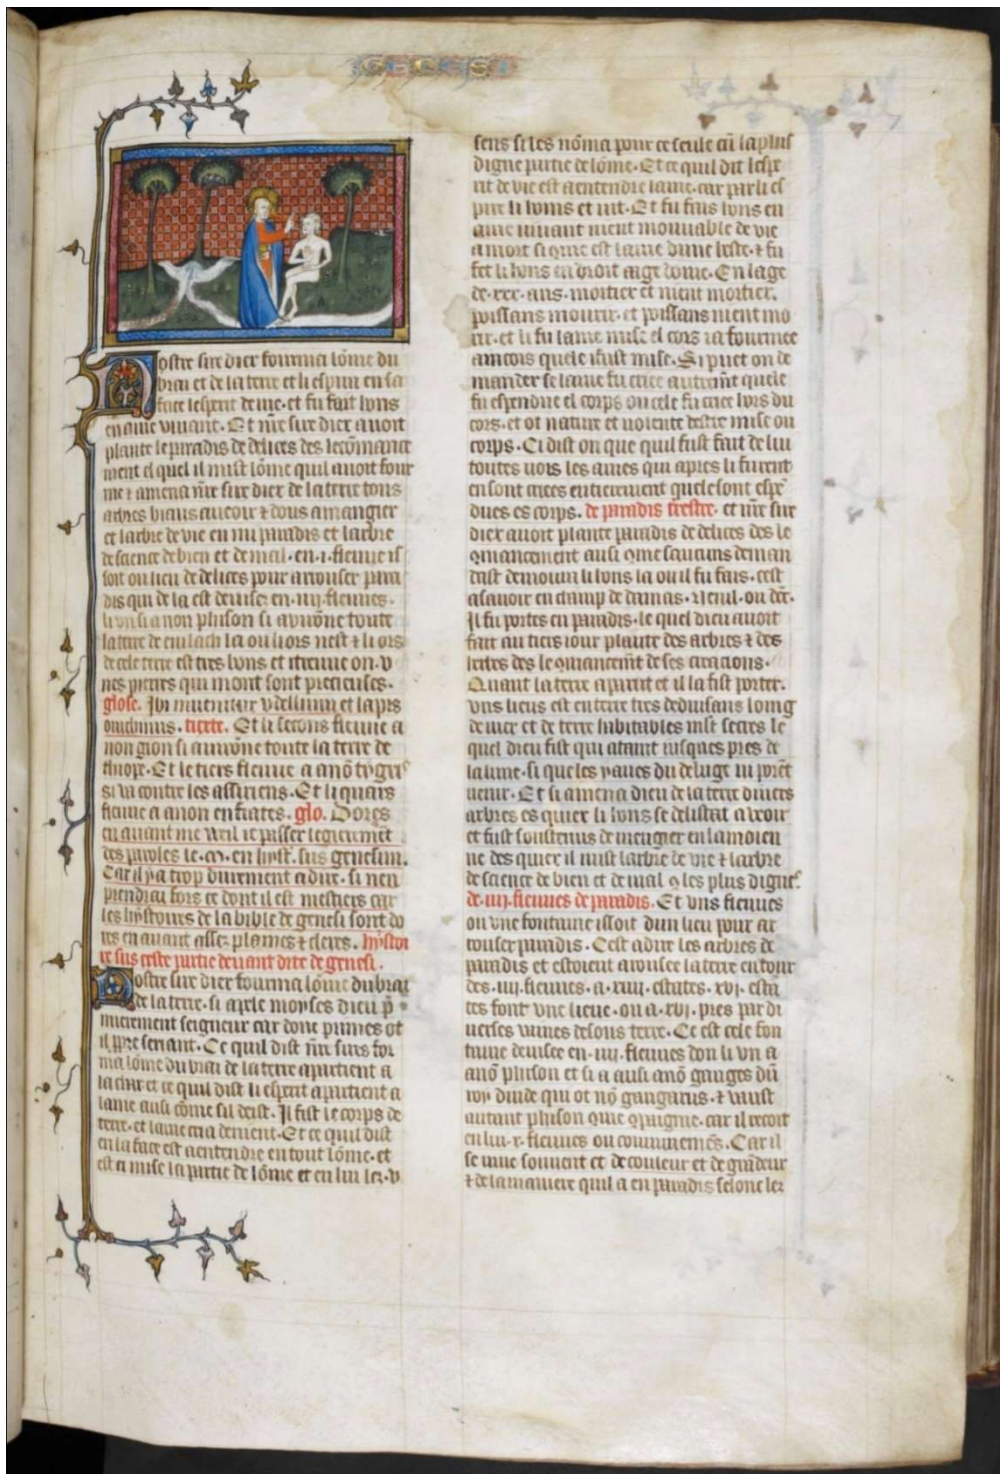 GENESI
Nostre sire diex fourma lõme du
brai et de la terre et li espira en sa
face lesperit de vie. et fu fait hons
en ame vivant. Et nr̃e sire diex avoit
plante le paradis de delices des le cõmance
ment el quel il mist lõme quil avoit four
me ⁊ amena nr̃e sire diex de la terre tous
arbres biaus a veoir ⁊ dous a mangier
et larbre de vie en mi paradis et larbre
de science de bien et de mal. en .i. fleuve is
soit ou lieu de delices pour arouser para
dis qui de la est devise en .iiij. fleuves.
li uns i a non phison si avirõne toute
la terre de evilach la ou li ors nest ⁊ li ors
de cele terre est tres bons et itreuve on .v
nes pierres qui mont sont precieuses.
glose. Jbi invenitur bdellium et lapis
onichinus. tiexte. Et li secons fleuve a
non gion si avirõne toute la terre de
thiope. Et le tiers fleuve a anõ tygris
si va contre les assiriens. Et li quars
fleuve a anon eufrates. glo. Dores
en avant me veil je passer legierem̃t
des paroles le .m. en hyst. sus genesim.
Car il ya trop durement a dire. si nen
prendrai fors ce dont il est mestiers car
les hystoires de la bible de genesi sont do
res en avant asses plaines ⁊ cleres. hystoi
re sus ceste partie devant dite de genesi.
Nostre sire diex fourma lõme du brai
de la terre. si apele moyses dieu p̃
mierement seigneur car donc primes ot
il p̱pre serjant. Ce quil dist nr̃e sires for
ma lõme du brai de la terre apartient a
la char et ce quil dist li esperit apartient a
lame ausi cõme sil deist. Jl fist le corps de
terre. et lame cria de nient. Et ce quil dist
en la face est a entendre en tout lõme. et
est ci mise la partie de lõme et en lui les .v.
sens si les nõma pour ce seule cũ la plus
digne partie de lõme. Et ce quil dit lespe
rit de vie est a entendre lame. car par li es
pire li homs et vit. Et fu fais hons en
ame vivant nient mouvable de vie
a mort si ꝯme est lame dune beste. ⁊ fu
fet li hons en droit aage dome. En lage
de .xxx. ans. mortier et nient mortier.
poissans mourir. et poissans nient mo
rir. et li fu lame mise el cors ia fourmee
aincois quele i fust mise. Si puet on de
mander se lame fu criee autrem̃t quele
fu espendue el corps ou cele fu criee hors du
cors. et ot nature et volente destre mise ou
corps. Ci dist on que quil fust fait de lui
toutes vois les ames qui apres li furent
en sont criees entierement quele sont espẽ
dues es corps. de paradis t̃restre. et nr̃e sire
diex avoit plante paradis de delices des le
ꝯmancement ausi ꝯme saucuns deman
dast demoura li hons la ou il fu fais. cest
asavoir en champ de damas.
Jl fu portes en paradis. le quel dieu avoit
fait au tiers iour plante des arbres ⁊ des
herbes des le ꝯmancem̃t de ses creacions.
Quant la terre aparut et il la fist porter.
uns lieus est en terre tres deduisans loing
de mer et de terre habitables mlt secres le
quel dieu fist qui ataint iusques pres de
la lune. si que les yaues du deluge ni porẽt
venir. Et si amena dieu de la terre divers
arbres es quiex li hons se delitast a veoir
et fust soustenus de mengier en la moien
ne des quiex il mist larbre de vie ⁊ larbre
de science de bien et de mal ꝯ les plus dignes.
de .iiij. fleuves de paradis. Et uns fleuves
ou une fontaine issoit dun lieu pour ar
rouser paradis. Cest a dire les arbres de
paradis et estoient arousee la terre entour
des .iiij. fleuves. a .xiiij. estates. .xvj. esta
tes font une lieue. ou a .xvj. pres par di
verses vaines desous terre. Ce est cele fon
taine devisee en .iiij. fleuves don li un a
anõ phison et si a ausi anõ ganges dũ
roy dinde qui ot nõ gangarus. ⁊ vaust
autant phison ꝯme ꝯpaignie. car il recoit
en lui .x. fleuves ou couvinemẽs. Car il
se mue souvent et de couleur et de grãdeur
⁊ de la maniere quil a en paradis selonc les